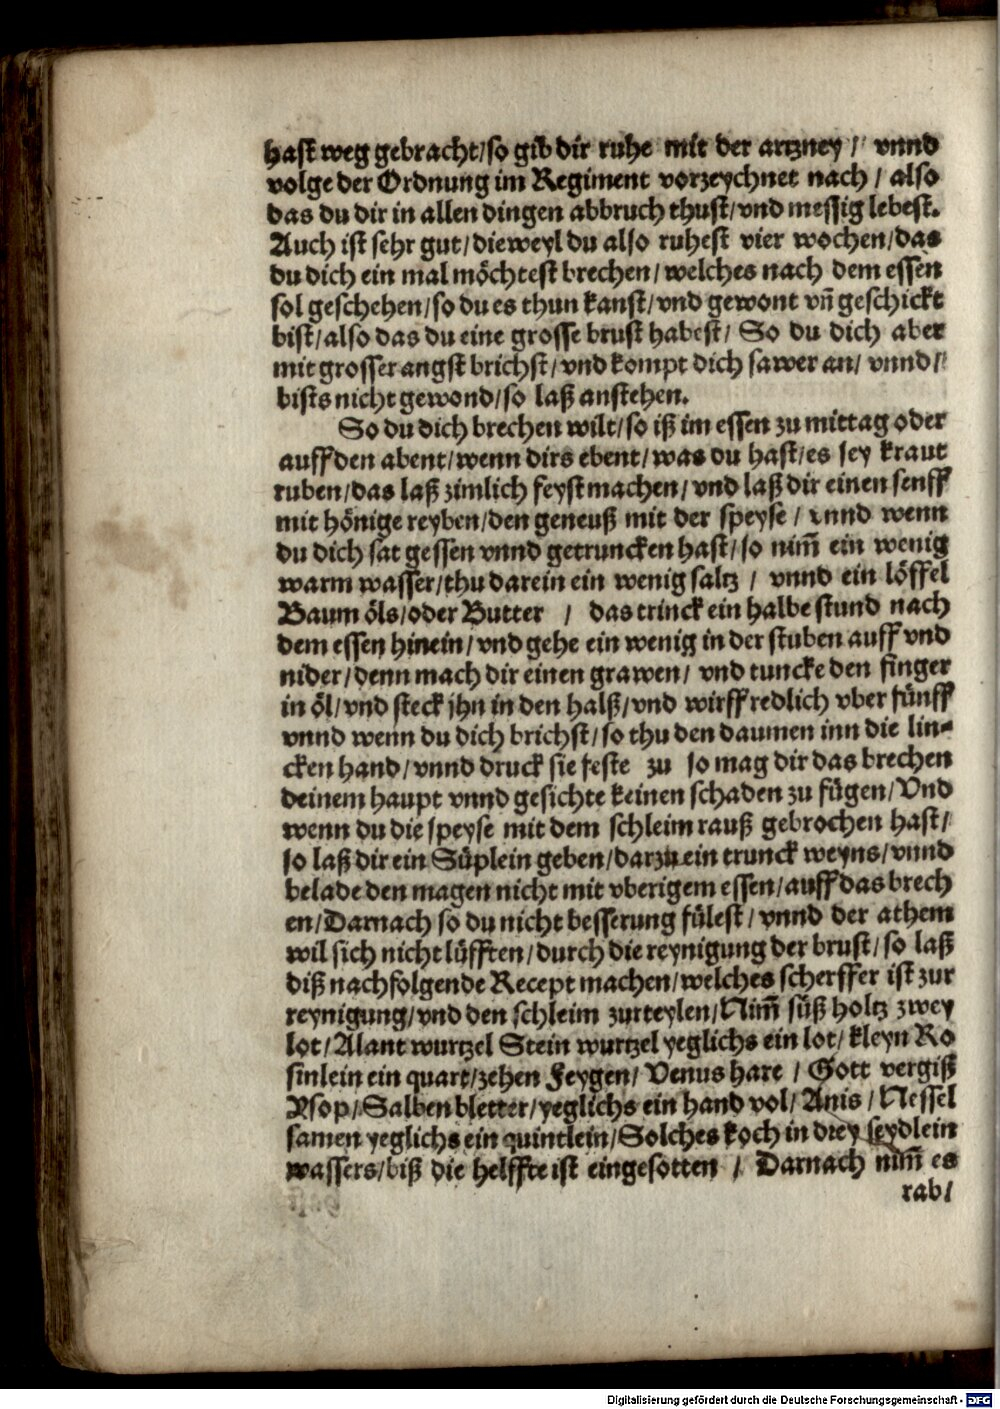 hast weg gebracht/so gib dir ruhe mit der artzney / vnnd
volge der Ordnung im Regiment vorzeychnet nach / also
das du dir in allen dingen abbruch thust/vnd messig lebest.
Auch ist sehr gut/dieweyl du also ruhest vier wochen/das
du dich ein mal möchtest brechen/welches nach dem essen
sol geschehen/so du es thun kanst/vnd gewont vn̄ geschickt
bist/also das du eine grosse brust habest/ So du dich aber
mit grosser angst brichst/vnd kompt dich sawer an/ vnnd/
bists nicht gewond/so laß anstehen.
So du dich brechen wilt/so iß im essen zu mittag oder
auff den abent/wenn dirs ebent/was du hast/es sey kraut
ruben/das laß zimlich feyst machen/vnd laß dir einen senff
mit hönige reyben/den geneuß mit der speyse / vnnd wenn
du dich sat gessen vnnd getruncken hast/so nim̄ ein wenig
warm wasser/thu darein ein wenig saltz / vnnd ein löffel
Baum öls/oder Butter / das trinck ein halbe stund nach
dem essen hinein/vnd gehe ein wenig in der stuben auff vnd
nider/denn mach dir einen grawen/ vnd tuncke den finger
in öl/vnd steck jhn in den halß/vnd wirff redlich vber fünff
vnnd wenn du dich brichst/so thu den daumen inn die lin-
cken hand/vnnd druck sie feste zu so mag dir das brechen
deinem haupt vnnd gesichte keinen schaden zu fügen/Vnd
wenn du die speyse mit dem schleim rauß gebrochen hast/
so laß dir ein Süplein geben/darzu ein trunck weyns/vnnd
belade den magen nicht mit vberigem essen/auff das brech
en/Darnach so du nicht besserung fülest/vnnd der athem
wil sich nicht lüfften/durch die reynigung der brust/so laß
diß nachfolgende Recept machen/welches scherffer ist zur
reynigung/vnd den schleim zurteylen/Nim̄ süß holtz zwey
lot/Alant wurtzel Stein wurtzel yeglichs ein lot/kleyn Ro
sinlein ein quart/zehen Feygen/ Venus hare / Gott vergiß
Ysop/Salben bletter/yeglichs ein hand vol/Anis/Nessel
samen yeglichs ein quintlein/Solches koch in drey seydlein
wassers/biß die helffte ist eingesotten / Darnach nim̄ es
rab/
Digitalisierung gefördert durch die Deutsche Forschungsgemeinschaft - DFG